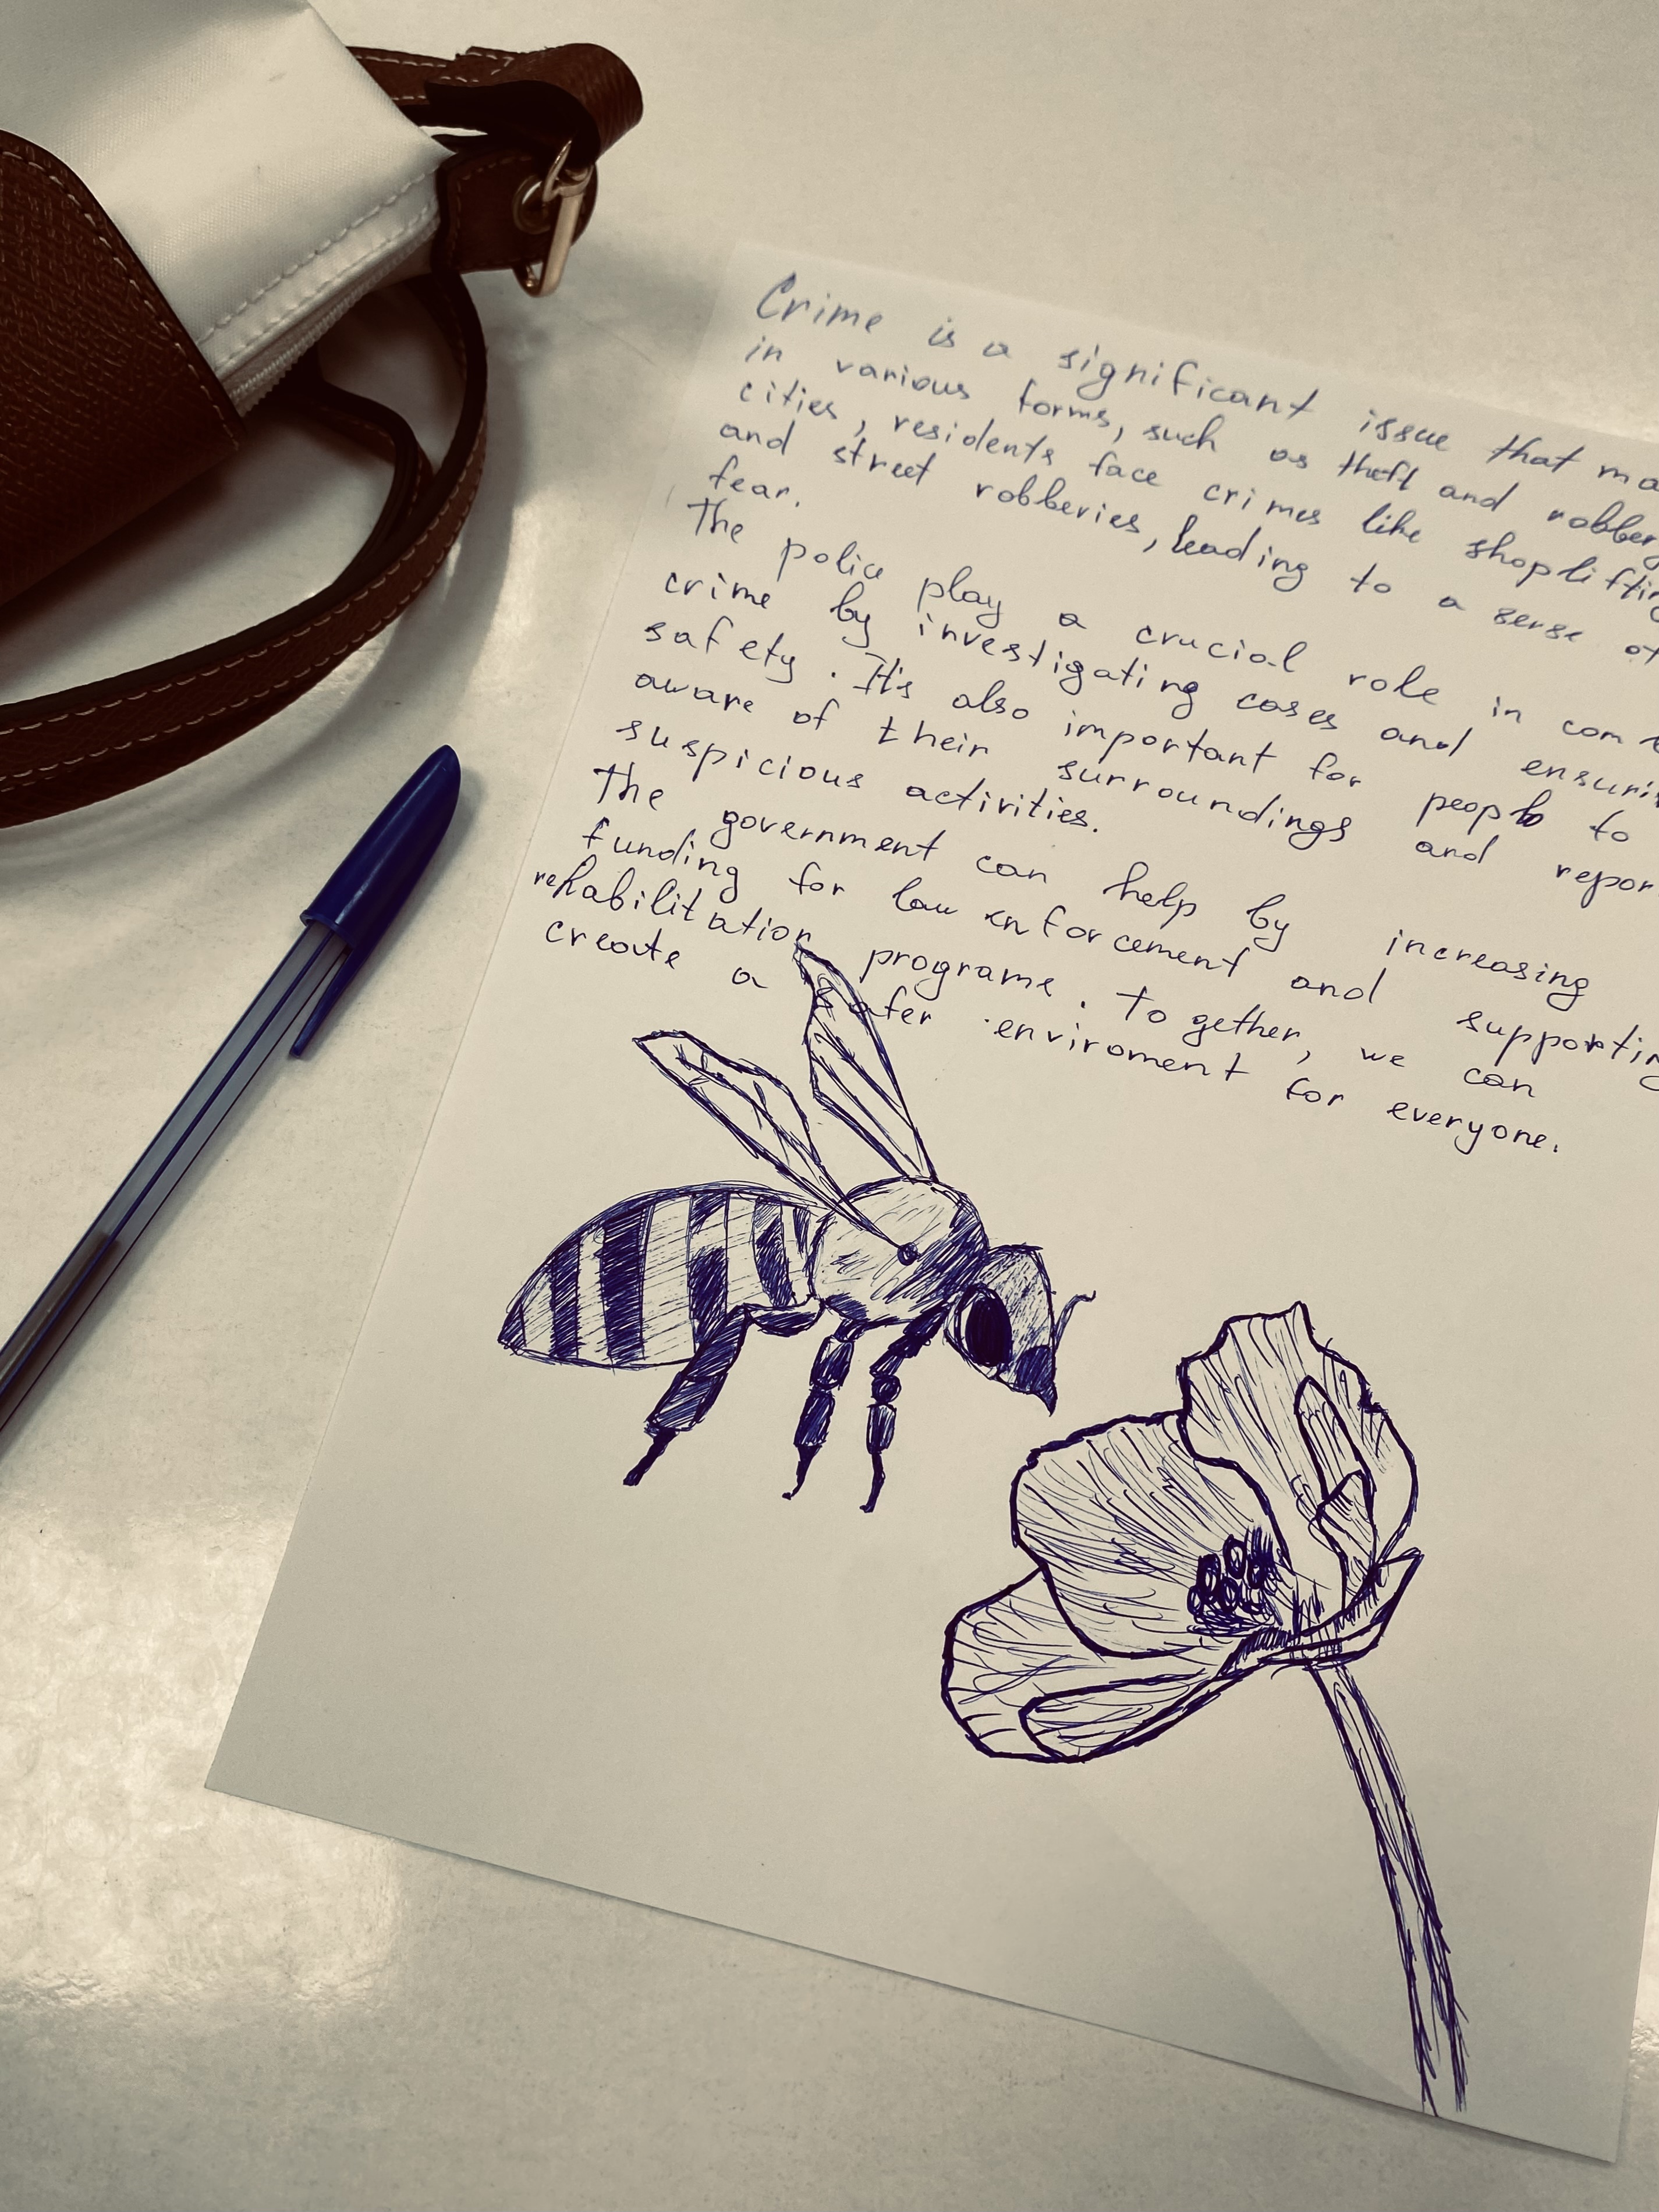 Crime is a significant issue that ma
in various forms, such as theft and robbery
cities, residents face crimes like shoplifting
and street robberies, leading to a sense of
fear.
The police play a crucial role in com
crime by investigating cases and ensuri
safety. It's also important for people to
aware of their surroundings and repor
suspicious activities.
The government can help by increasing
funding for law enforcement and supporting
rehabilitation programe. Together, we can
create a safer enviroment for everyone.